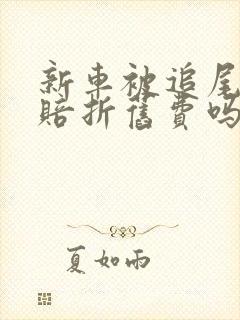 新車被追尾
賠折舊費嗎
夏如雨